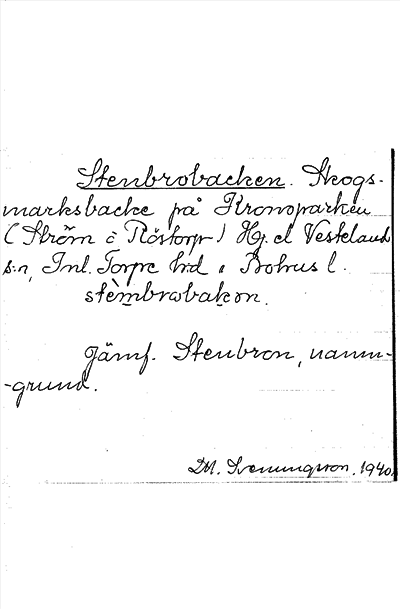 Stenbrobacken. Skogs-
marksbacke på Kronoparken
(Ström o Röstorp) Hj. el Vesteland
s:n, Inl. Torpe hd o Bohus l.
stèmbrobakən.
Jämf. Stenbron, namn-
-grund.
M. Svenungsson. 1940.